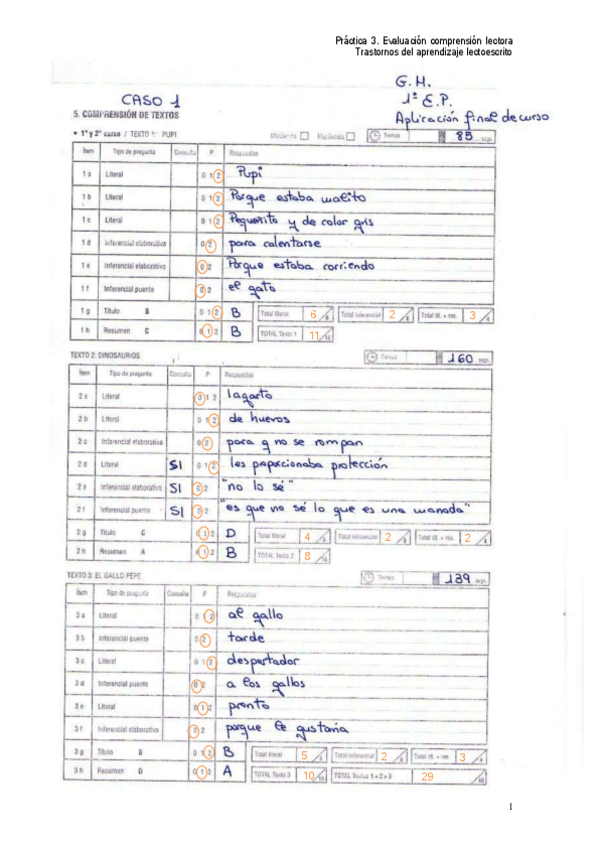 Práctica 3. Evaluación comprensión lectora
Trastornos del aprendizaje lectoescrito
G.H.
CASO 1 1º E.P.
Aplicación final de curso
5. COMPRENSIÓN DE TEXTOS
• 1º y 2º curso / TEXTO 1: PUPI Minúscula Mayúscula Tiempo 85 segs.
Ítem Tipo de pregunta Consulta P Respuestas
1 a Literal 0 1 2 Pupi
1 b Literal 0 1 2 Porque estaba malito
1 c Literal 0 1 2 Pequeñito y de color gris
1 d Inferencial elaborativa 0 2 para calentarse
1 e Inferencial elaborativa 0 2 Porque estaba corriendo
1 f Inferencial puente 0 2 el gato
1 g Título B 0 1 2 B Total literal 6 Total inferencial 2 Total tít. + res. 3
1 h Resumen C 0 1 2 B TOTAL Texto 1 11
TEXTO 2: DINOSAURIOS Tiempo 160 segs.
Ítem Tipo de pregunta Consulta P Respuestas
2 a Literal 0 1 2 lagarto
2 b Literal 0 1 2 de huevos
2 c Inferencial elaborativa 0 2 para q no se rompan
2 d Literal SI 0 1 2 les poporcionaba protección
2 e Inferencial elaborativa SI 0 2 "no lo sé"
2 f Inferencial puente SI 0 2 "es que no sé lo que es una manada"
2 g Título C 0 1 2 D Total literal 4 Total inferencial 2 Total tít. + res. 2
2 h Resumen A 0 1 2 B TOTAL Texto 2 8
TEXTO 3: EL GALLO PEPE Tiempo 139 segs.
Ítem Tipo de pregunta Consulta P Respuestas
3 a Literal 0 2 al gallo
3 b Inferencial puente 0 2 tarde
3 c Literal 0 1 2 despertador
3 d Inferencial puente 0 2 a los gallos
3 e Literal 0 1 2 pronto
3 f Inferencial elaborativa 0 2 porque le gustaria
3 g Título B 0 1 2 B Total literal 5 Total inferencial 2 Total tít. + res. 3
3 h Resumen D 0 1 2 A TOTAL Texto 3 10 TOTAL Textos 1 + 2 + 3 29
1